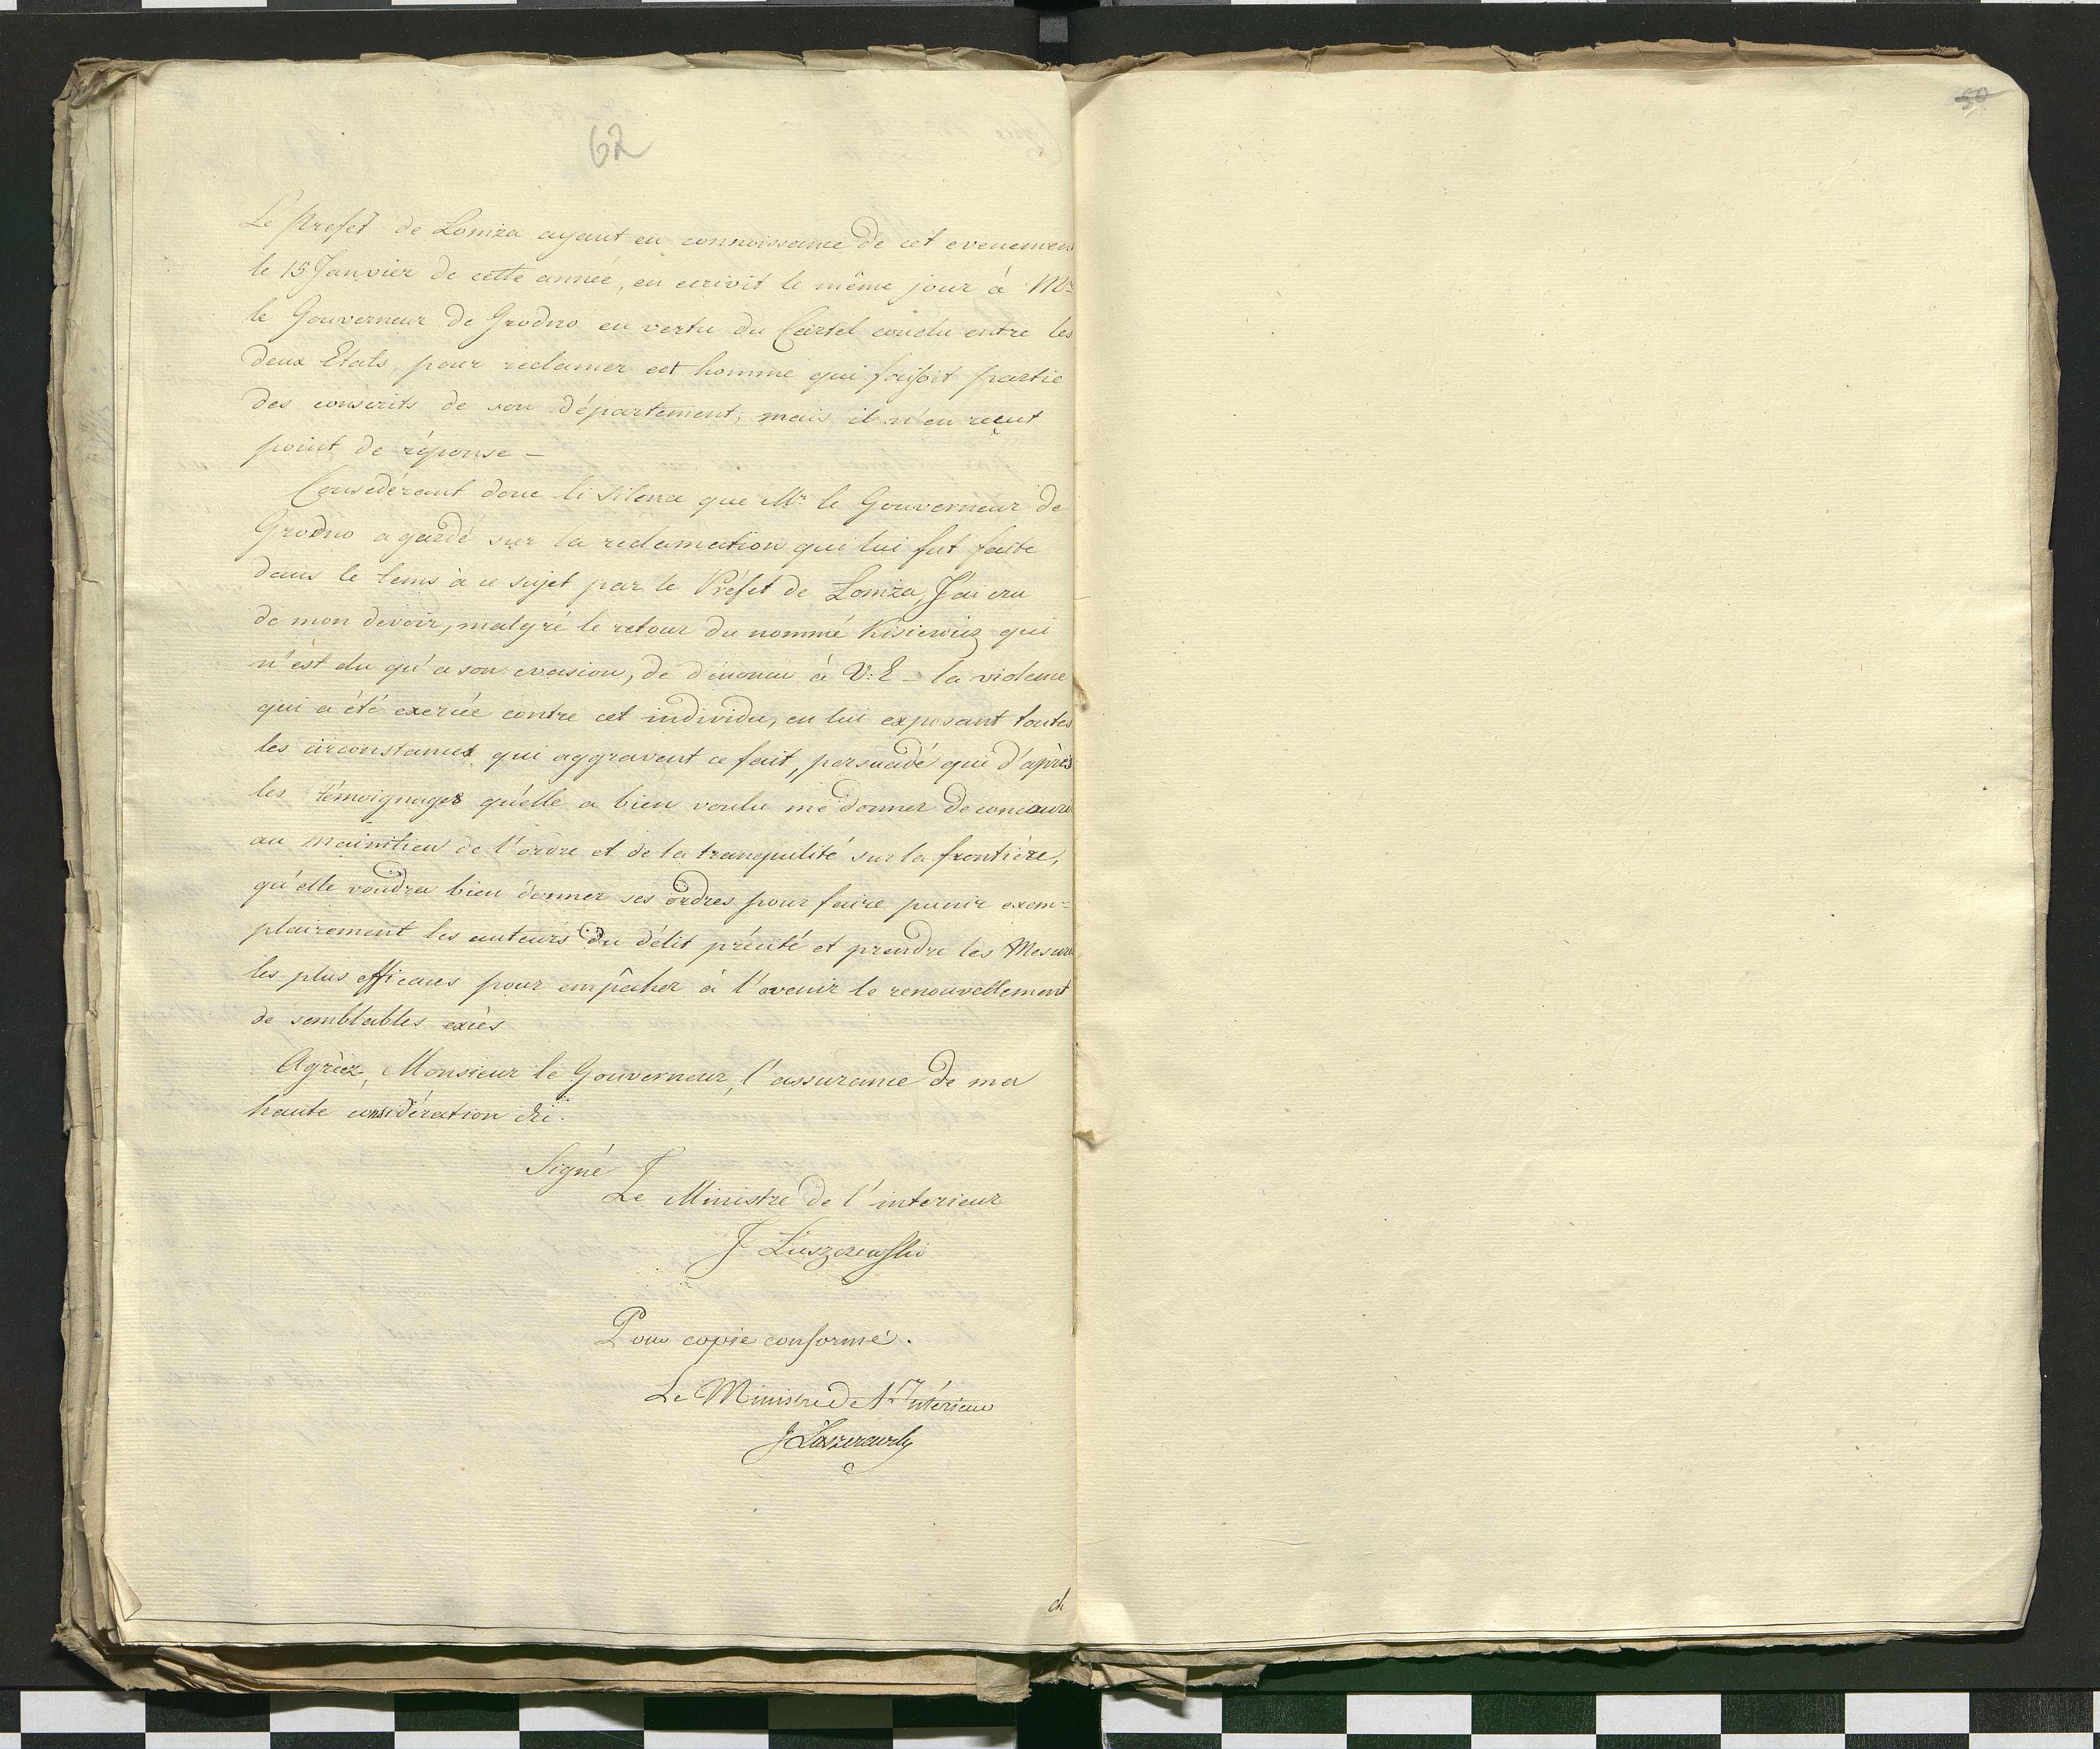 62
Le Prefet de Lomza ayant eu connoissance de cet evenemen
le 15 Janvier de cette année, en ecrivit le même jour à Mr
le Gouverneur de Grodno en vertu du Cartel conclu entre les
deux Etats, pour reclamer cet homme qui faisoit partie
des conscrits de son département; mais il n'en reçut
point de réponse –
Considérant donc le silence que Mr le Gouverneur de
Grodno a gardé sur la reclamation qui lui fut faite
dans le tems à ce sujet par le Préfet de Lomza, J'ai cru
de mon devoir, malgré le retour du nommé Kisiewicz qui
n'est du qu'a son evasion, de dénoncer à V: E – la violence
qui a été exercée contre cet individu, en lui exposant toutes
les circonstances qui aggravent ce fait, persuadé que d'après
les témoignages qu'elle a bien voulu me donner de concourir
au maintien de l'ordre et de la tranquilité sur la frontière,
qu'elle voudra bien donner ses ordres pour faire punir exem=
plairement les auteurs du délit précité et prendre les Mesure
les plus efficaces pour empêcher à l'avenir le renouvellement
de semblables excès
Agréez, Monsieur le Gouverneur, l'assurance de ma
haute considération
Signé
Le Ministre de l'interieur
J Luszczewski
Pour copie conforme.
Le Ministre de l'Intérieur
J Luszczewski
ch
50